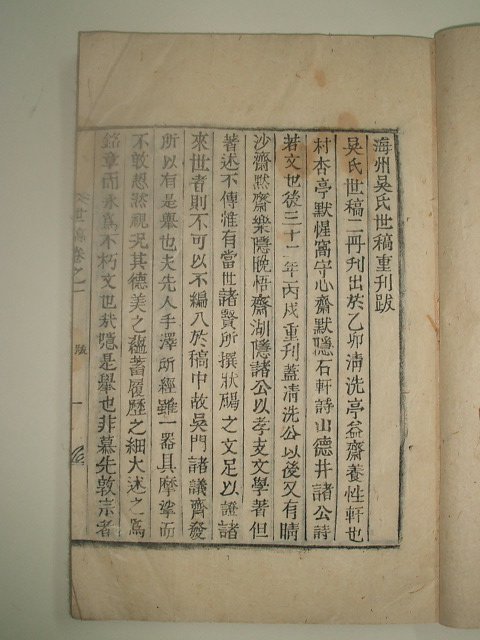 海州吳氏世稿重刊跋
吳氏世稿二冊刊出於乙卯淸洗亭益齋養性軒也
村杏亭默惺窩守心齋默隱石軒詩山德井諸公詩
若文也後三十二年丙戌重刊蓋淸洗公以後又有晴
沙齋默齋樂隱晩悟齋湖隱諸公以孝友文學著但
著述不傳惟有當世諸賢所撰狀碣之文足以證諸
來世者則不可以不編入於稿中故吳門諸議齊發
所以有是擧也夫先人手澤所經雖一器具摩挲而
不敢恝然視況其德美之蘊蓄履歷之細大述之爲
銘章而永爲不朽文也哉隱是擧也非慕先敦宗者
世稿卷之二
跋
一